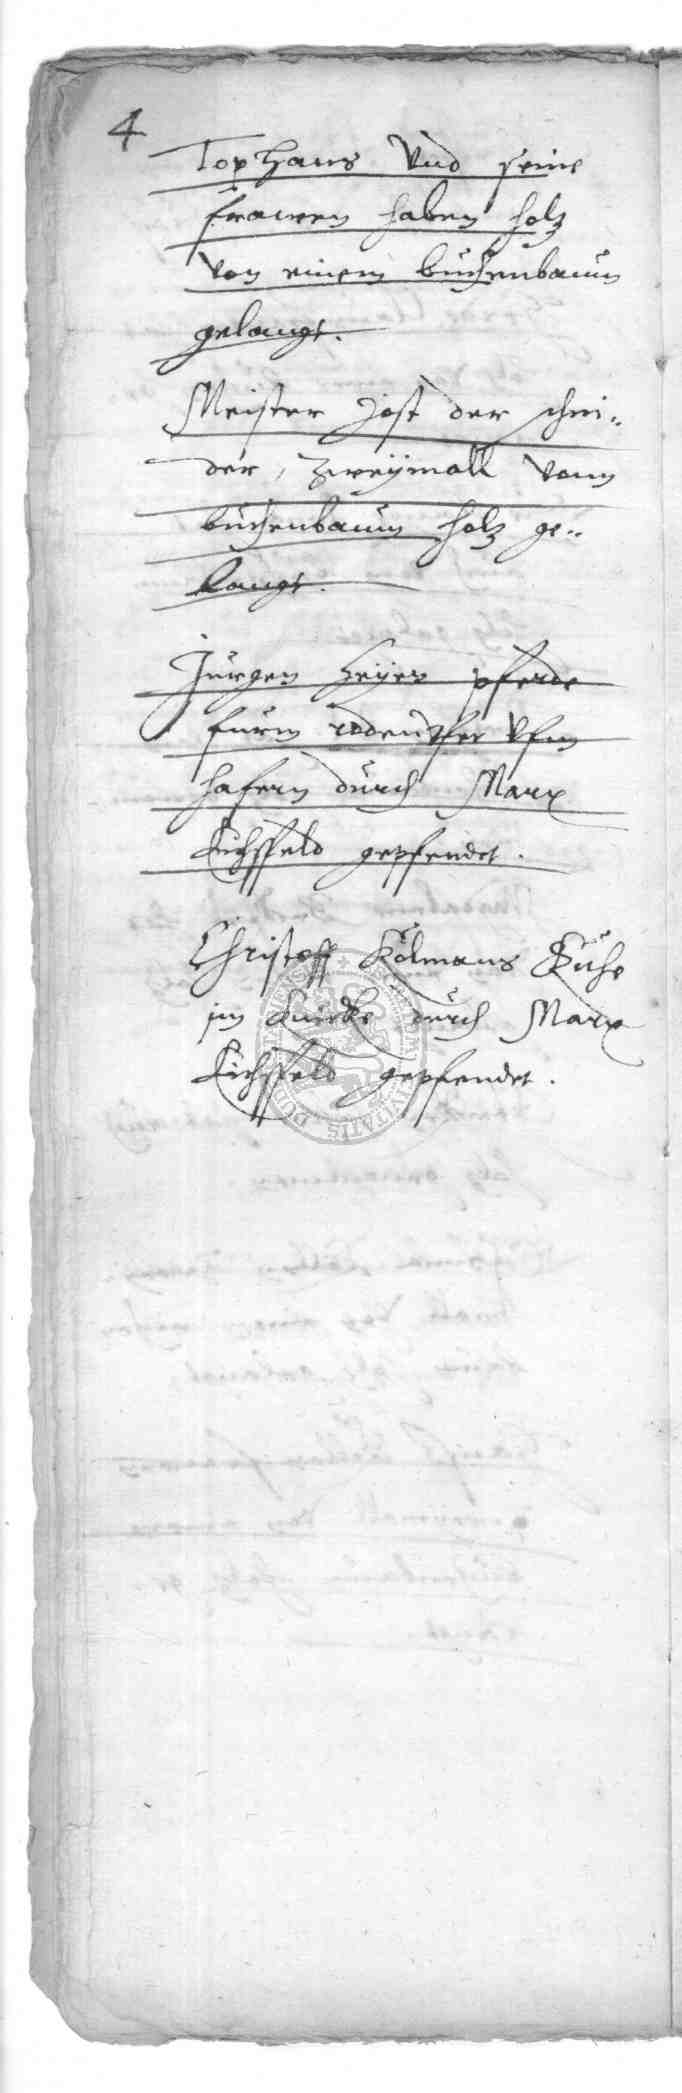 4
Top Hans Vnd seine
frawen haben holz
von einem buchenbaum
gelangt.
Meister Jost der schni„
der, zweymall vom
buchenbaum holz ge„
langt.
Jurgen Heyen pferde
furm Vfm
hafern durch Marx
Eichsfeld gepfendet.
Christoff Kolmans Kuhe
im durch Marx
Eichsfeld gepfendet.
CIVITATIS DUD